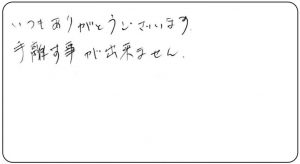 いつもありがとうございます
手離す事が出来ません.